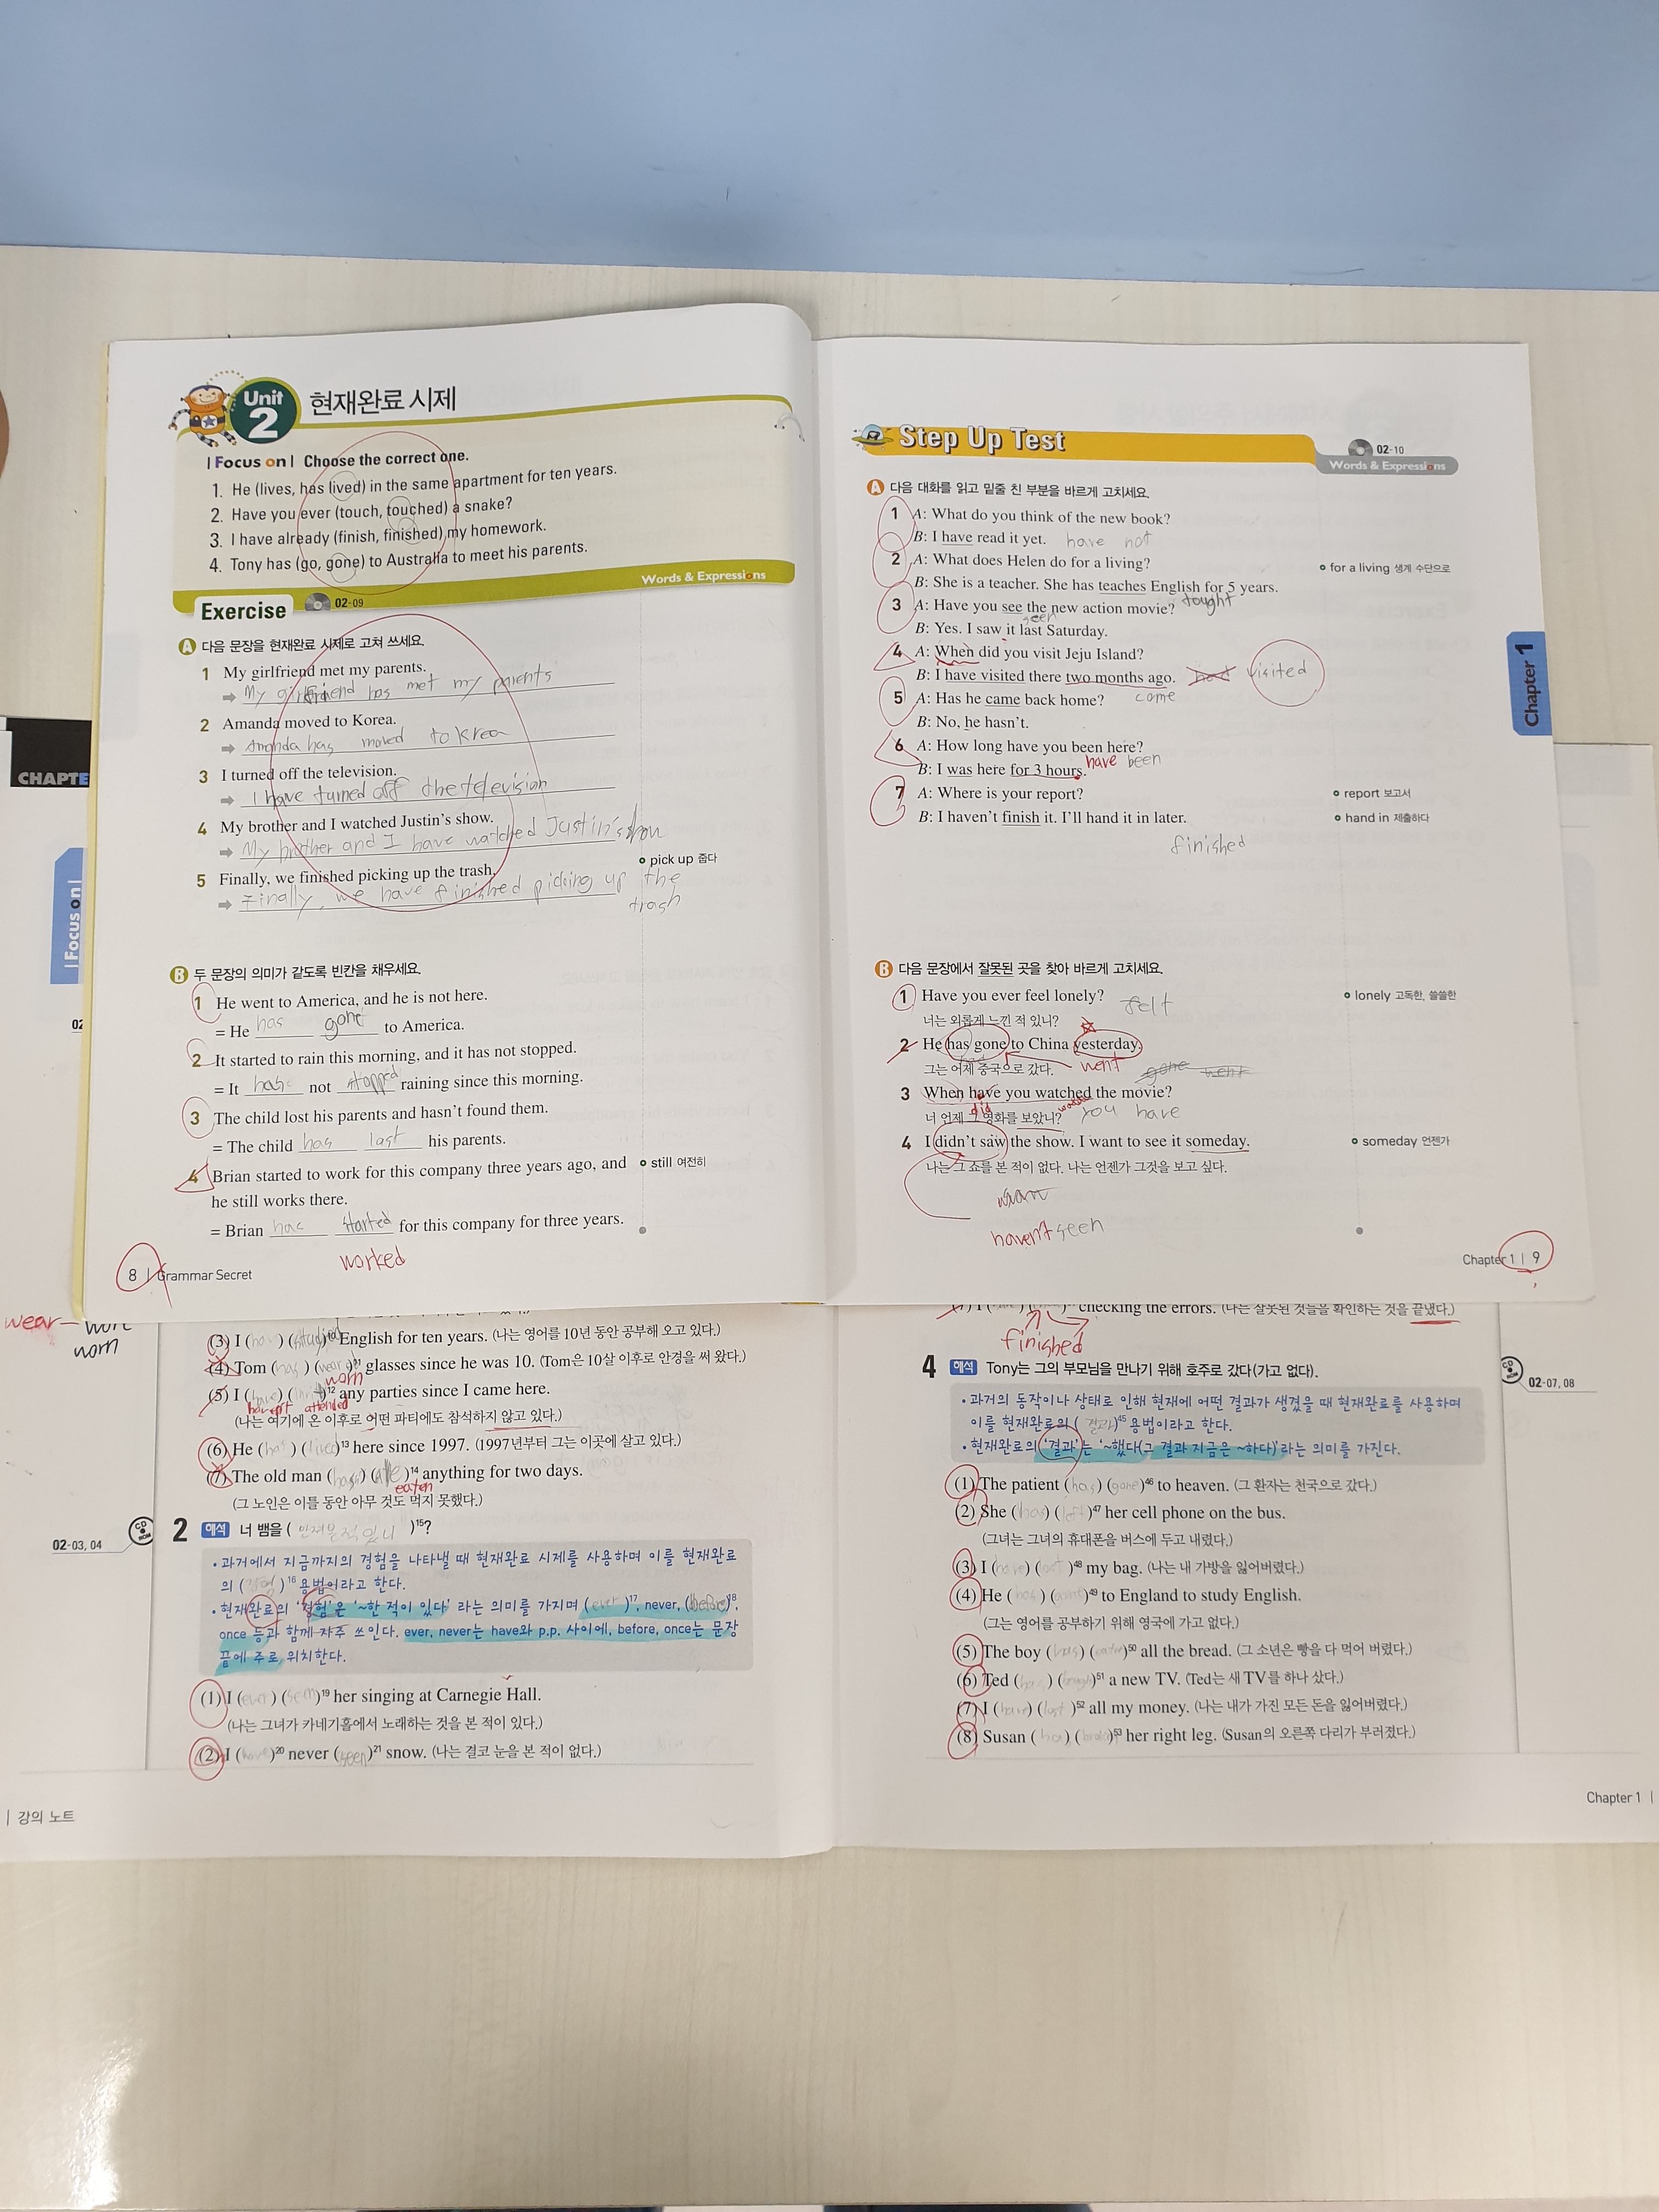 Unit 2
현재완료 시제
| Focus on | Choose the correct one.
1. He (lives, has lived) in the same apartment for ten years.
2. Have you ever (touch, touched) a snake?
3. I have already (finish, finished) my homework.
4. Tony has (go, gone) to Australia to meet his parents.
Words & Expressions
Exercise 02-09
A 다음 문장을 현재완료 시제로 고쳐 쓰세요.
1 My girlfriend met my parents.
➡ My girlfriend has met my parents
2 Amanda moved to Korea.
➡ Amanda has moved to Krea
3 I turned off the television.
➡ I have turned off the television
4 My brother and I watched Justin's show.
➡ My brother and I have watched Justin's show
pick up 줍다
5 Finally, we finished picking up the trash.
➡ Finally, we have finished picking up the
trash
B 두 문장의 의미가 같도록 빈칸을 채우세요.
1 He went to America, and he is not here.
= He has gone to America.
2 It started to rain this morning, and it has not stopped.
= It has not stopped raining since this morning.
3 The child lost his parents and hasn't found them.
= The child has last his parents.
4 Brian started to work for this company three years ago, and
still 여전히
he still works there.
= Brian has started for this company for three years.
worked
8 | Grammar Secret
Step Up Test
02-10
Words & Expressions
A 다음 대화를 읽고 밑줄 친 부분을 바르게 고치세요.
1 A: What do you think of the new book?
B: I have read it yet. have not
2 A: What does Helen do for a living?
for a living 생계 수단으로
B: She is a teacher. She has teaches English for 5 years.
tought
3 A: Have you see the new action movie?
seen
B: Yes. I saw it last Saturday.
4 A: When did you visit Jeju Island?
B: I have visited there two months ago. visited
5 A: Has he came back home? come
B: No, he hasn't.
6 A: How long have you been here?
B: I was here for 3 hours. have been
7 A: Where is your report?
report 보고서
B: I haven't finish it. I'll hand it in later.
hand in 제출하다
finished
B 다음 문장에서 잘못된 곳을 찾아 바르게 고치세요.
1 Have you ever feel lonely? felt
lonely 고독한, 쓸쓸한
너는 외롭게 느낀 적 있니?
2 He has gone to China yesterday.
그는 어제 중국으로 갔다. went gone went
3 When have you watched the movie?
did watch
너 언제 그 영화를 보았니? you have
4 I didn't saw the show. I want to see it someday.
someday 언젠가
나는 그 쇼를 본 적이 없다. 나는 언젠가 그것을 보고 싶다.
haven't seen
Chapter 1 | 9
Chapter 1
CHAPTE
| Focus on |
02
wear — wore
worn
(3) I (have) (studied)10 English for ten years. (나는 영어를 10년 동안 공부해 오고 있다.)
(4) Tom (has) (weard)11 glasses since he was 10. (Tom은 10살 이후로 안경을 써 왔다.)
worn
(5) I (have) ( )12 any parties since I came here.
haven't attended
(나는 여기에 온 이후로 어떤 파티에도 참석하지 않고 있다.)
(6) He (has) (lived)13 here since 1997. (1997년부터 그는 이곳에 살고 있다.)
(7) The old man (has) (ate)14 anything for two days.
eaten
(그 노인은 이틀 동안 아무 것도 먹지 못했다.)
02-03, 04
2 해석 너 뱀을 ( )15?
• 과거에서 지금까지의 경험을 나타낼 때 현재완료 시제를 사용하며 이를 현재완료
의 (경험)16 용법이라고 한다.
• 현재완료의 '경험'은 '~한 적이 있다' 라는 의미를 가지며 (ever)17, never, (before)18,
once 등과 함께 자주 쓰인다. ever, never는 have와 p.p. 사이에, before, once는 문장
끝에 주로 위치한다.
(1) I (ever) (seen)19 her singing at Carnegie Hall.
(나는 그녀가 카네기홀에서 노래하는 것을 본 적이 있다.)
(2) I (have)20 never (seen)21 snow. (나는 결코 눈을 본 적이 없다.)
| 강의 노트
checking the errors. (나는 잘못된 것들을 확인하는 것을 끝냈다.)
finished
4 해석 Tony는 그의 부모님을 만나기 위해 호주로 갔다(가고 없다).
02-07, 08
• 과거의 동작이나 상태로 인해 현재에 어떤 결과가 생겼을 때 현재완료를 사용하며
이를 현재완료의 (결과)45 용법이라고 한다.
• 현재완료의 '결과'는 '~했다(그 결과 지금은 ~하다)'라는 의미를 가진다.
(1) The patient (has) (gone)46 to heaven. (그 환자는 천국으로 갔다.)
(2) She (has) (left)47 her cell phone on the bus.
(그녀는 그녀의 휴대폰을 버스에 두고 내렸다.)
(3) I (have) (lost)48 my bag. (나는 내 가방을 잃어버렸다.)
(4) He (has) (gone)49 to England to study English.
(그는 영어를 공부하기 위해 영국에 가고 없다.)
(5) The boy (has) (eaten)50 all the bread. (그 소년은 빵을 다 먹어 버렸다.)
(6) Ted (has) (bought)51 a new TV. (Ted는 새 TV를 하나 샀다.)
(7) I (have) (lost)52 all my money. (나는 내가 가진 모든 돈을 잃어버렸다.)
(8) Susan (has) ( )53 her right leg. (Susan의 오른쪽 다리가 부러졌다.)
Chapter 1 |